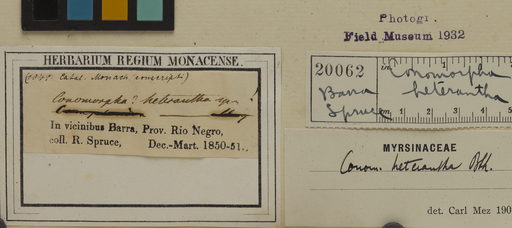 HERBARIUM REGIUM MONACENSE.
Conomorpha? heterantha
In vicinibus Barra, Prov. Rio Negro,
coll. R. Spruce, Dec.-Mart. 1850-51.
Photogr.
Field Museum 1932
20062
Conomorpha
heterantha
Barra
Spruce
1 2 3 4 5
MYRSINACEAE
Conom. heterantha
det. Carl Mez 190